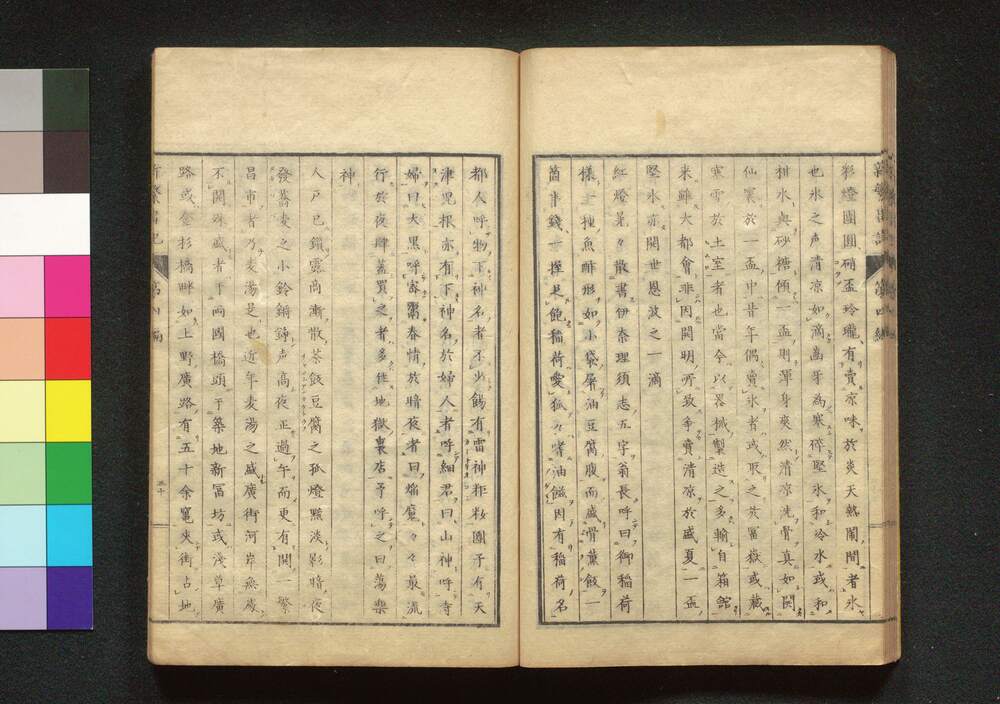 彩燈團圓硝盃玲瓏有賣凉味於炎天熱閙間者氷
也氷之声清凉如滴萬牙為寒碎堅氷和冷水或和
柑水與砂糖傾一盃則渾身爽然清凉洗骨真如
仙寰於一盃中昔年偶賣氷者或取之於冨嶽或蔵
寒雪於土室者也當今以器械製造之多輸自箱舘
来雖大都會非因開明所致乎賣清凉於盛夏一盃
堅氷亦開世恩波之一滴
紅燈晃々散書伊奈理須志五字翁長呼曰御稲荷
様一種魚酢形如小袋屠油豆腐腹而盛骨董飯一
箇半錢一握足飽稲荷愛狐々嗜油鎰因有稲荷名
都人呼物下神名者不少餳有雷神粔籹團子有天
津里根亦有下神名於婦人者呼細君曰山神呼寺
婦曰大黒呼寄鬻春情於暗夜者曰焔魔々々最流
行於夜肆蓋買之者多徃地獄裏店予呼之曰蕩樂
神
人戸已鎖霊尚漸散茶飯豆腐之孤燈黯淡影暗夜
發蕎麦之小鈴錚錚声高夜正過午而更有開一繁
昌市者乃麦湯是也近年麦湯之盛廣街河岸無處
不開殊盛者于両國橋頭于築地新冨坊或淺草廣
路或金杉橋畔如上野廣路有五十余竃夾街占地
新繁昌記
第四編